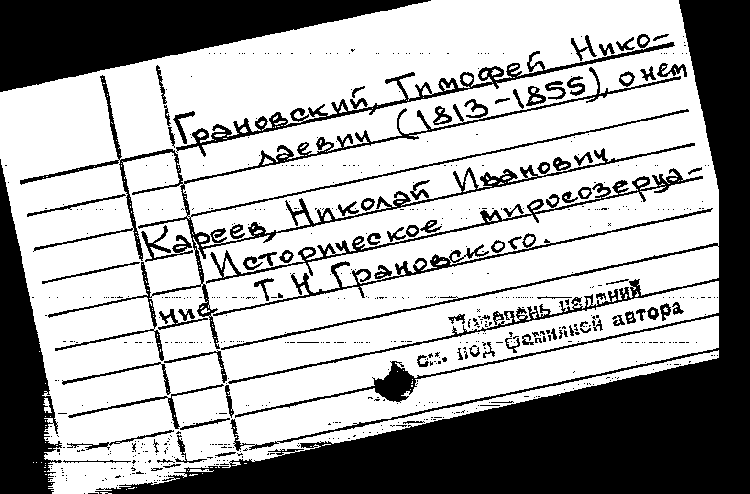 Грановский, Тимофей Нико-
лаевич (1813-1855), о нем
Кареев, Николай Иванович.
Историческое миросозерца-
ние Т. Н. Грановского.
Перечень изданий
см. под фамилией автора